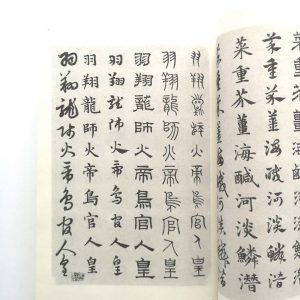 菜重芥薑海鹹河淡鱗潛
菜重芥薑海鹹河淡鱗潛
羽翔龍師火帝鳥官人皇
羽翔龍師火帝鳥官人皇
羽翔龍師火帝鳥官人皇
羽翔龍師火帝鳥官人皇
羽翔龍師火帝鳥官人皇
羽翔龍師火帝鳥官人皇